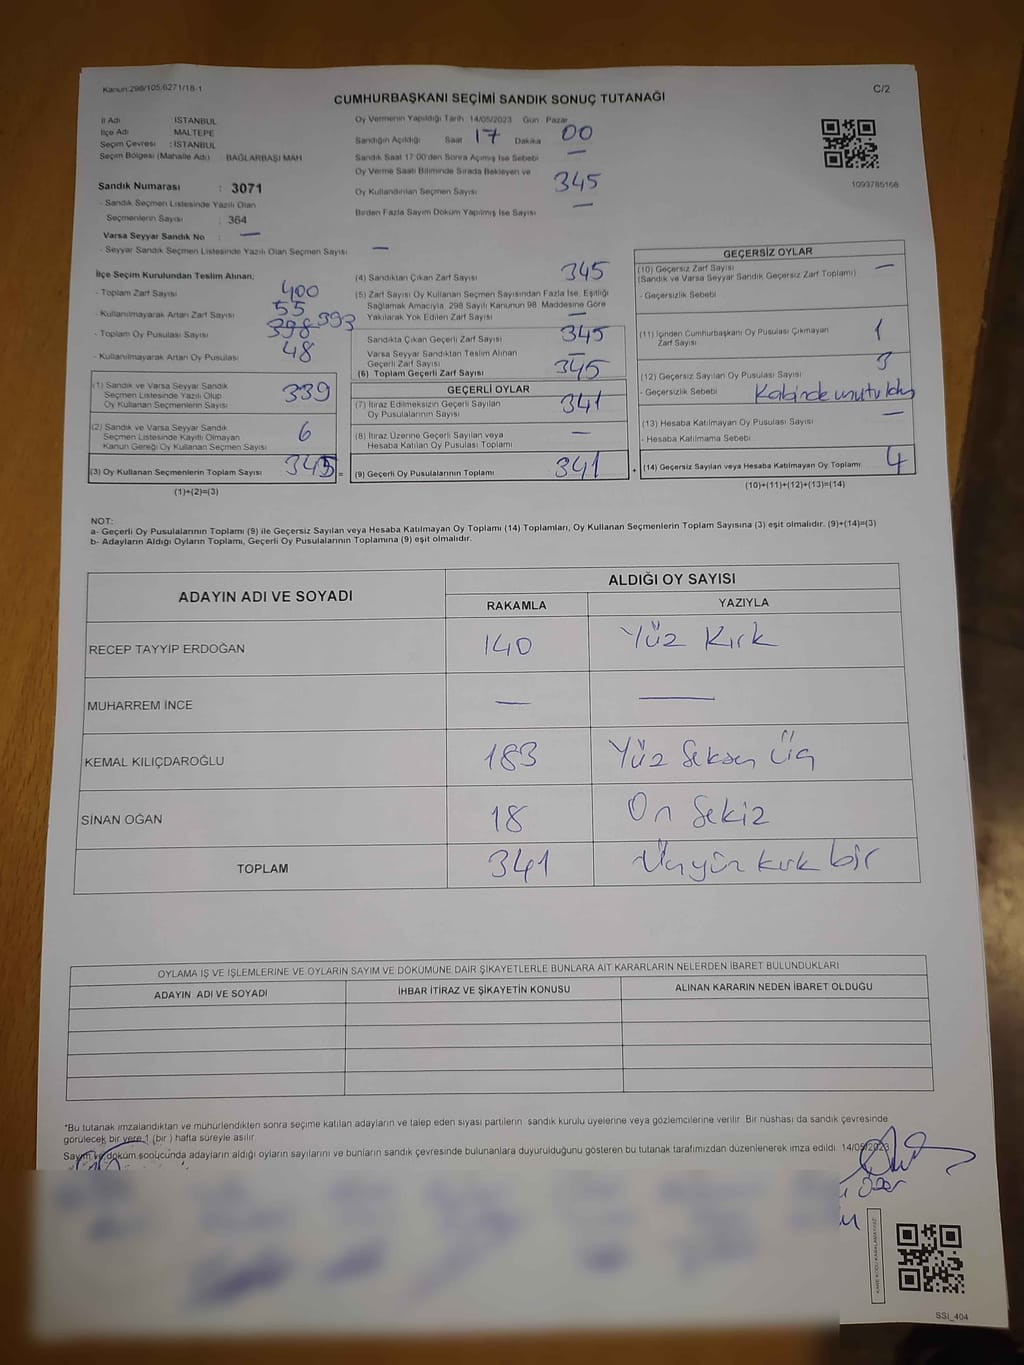 Kanun:298/105,6271/18-1
C/2
CUMHURBAŞKANI SEÇİMİ SANDIK SONUÇ TUTANAĞI
İl Adı : İSTANBUL
İlçe Adı : MALTEPE
Seçim Çevresi : İSTANBUL
Seçim Bölgesi (Mahalle Adı) : BAĞLARBAŞI MAH
Sandık Numarası : 3071
- Sandık Seçmen Listesinde Yazılı Olan
Seçmenlerin Sayısı : 364
Varsa Seyyar Sandık No : —
- Seyyar Sandık Seçmen Listesinde Yazılı Olan Seçmen Sayısı —
Oy Vermenin Yapıldığı Tarih 14/05/2023 Gün Pazar
Sandığın Açıldığı Saat 17 Dakika 00
Sandık Saat 17:00'den Sonra Açımış İse Sebebi —
Oy Verme Saati Bitiminde Sırada Bekleyen ve
Oy Kullandırılan Seçmen Sayısı 345
Birden Fazla Sayım Döküm Yapılmış İse Sayısı —
1093785168
İlçe Seçim Kurulundan Teslim Alınan;
- Toplam Zarf Sayısı 400
- Kullanılmayarak Artan Zarf Sayısı 55
- Toplam Oy Pusulası Sayısı 398 393
- Kullanılmayarak Artan Oy Pusulası 48
(1) Sandık ve Varsa Seyyar Sandık
Seçmen Listesinde Yazılı Olup
Oy Kullanan Seçmenlerin Sayısı 339
(2) Sandık ve Varsa Seyyar Sandık
Seçmen Listesinde Kayıtlı Olmayan
Kanun Gereği Oy Kullanan Seçmen Sayısı 6
(3) Oy Kullanan Seçmenlerin Toplam Sayısı 345 =
(1)+(2)=(3)
(4) Sandıktan Çıkan Zarf Sayısı 345
(5) Zarf Sayısı Oy Kullanan Seçmen Sayısından Fazla İse, Eşitliği
Sağlamak Amacıyla, 298 Sayılı Kanunun 98. Maddesine Göre
Yakılarak Yok Edilen Zarf Sayısı —
Sandıkta Çıkan Geçerli Zarf Sayısı 345
Varsa Seyyar Sandıktan Teslim Alınan
Geçerli Zarf Sayısı —
(6) Toplam Geçerli Zarf Sayısı 345
GEÇERLİ OYLAR
(7) İtiraz Edilmeksizin Geçerli Sayılan
Oy Pusulalarının Sayısı 341
(8) İtiraz Üzerine Geçerli Sayılan veya
Hesaba Katılan Oy Pusulası Toplamı —
(9) Geçerli Oy Pusulalarının Toplamı 341 +
GEÇERSİZ OYLAR
(10) Geçersiz Zarf Sayısı —
(Sandık ve Varsa Seyyar Sandık Geçersiz Zarf Toplamı)
- Geçersizlik Sebebi
(11) İçinden Cumhurbaşkanı Oy Pusulası Çıkmayan
Zarf Sayısı 1
(12) Geçersiz Sayılan Oy Pusulası Sayısı 3
- Geçersizlik Sebebi Kabinde unutuldu
(13) Hesaba Katılmayan Oy Pusulası Sayısı —
- Hesaba Katılmama Sebebi
(14) Geçersiz Sayılan veya Hesaba Katılmayan Oy Toplamı 4
(10)+(11)+(12)+(13)=(14)
NOT:
a- Geçerli Oy Pusulalarının Toplamı (9) ile Geçersiz Sayılan veya Hesaba Katılmayan Oy Toplamı (14) Toplamları, Oy Kullanan Seçmenlerin Toplam Sayısına (3) eşit olmalıdır. (9)+(14)=(3)
b- Adayların Aldığı Oyların Toplamı, Geçerli Oy Pusulalarının Toplamına (9) eşit olmalıdır.
ADAYIN ADI VE SOYADI
ALDIĞI OY SAYISI
RAKAMLA YAZIYLA
RECEP TAYYİP ERDOĞAN 140 Yüz Kırk
MUHARREM İNCE — —
KEMAL KILIÇDAROĞLU 183 Yüz Seksen Üç
SİNAN OĞAN 18 On Sekiz
TOPLAM 341 Üçyüz kırk bir
OYLAMA İŞ VE İŞLEMLERİNE VE OYLARIN SAYIM VE DÖKÜMÜNE DAİR ŞİKAYETLERLE BUNLARA AİT KARARLARIN NELERDEN İBARET BULUNDUKLARI
ADAYIN ADI VE SOYADI İHBAR İTİRAZ VE ŞİKAYETİN KONUSU ALINAN KARARIN NEDEN İBARET OLDUĞU
*Bu tutanak imzalandıktan ve mühürlendikten sonra seçime katılan adayların ve talep eden siyasi partilerin sandık kurulu üyelerine veya gözlemcilerine verilir. Bir nüshası da sandık çevresinde
görülecek bir yere 1 (bir) hafta süreyle asılır.
Sayım ve döküm sonucunda adayların aldığı oyların sayılarını ve bunların sandık çevresinde bulunanlara duyurulduğunu gösteren bu tutanak tarafımızdan düzenlenerek imza edildi. 14/05/2023
KARE KODU KARALAMAYINIZ!
SSİ_404